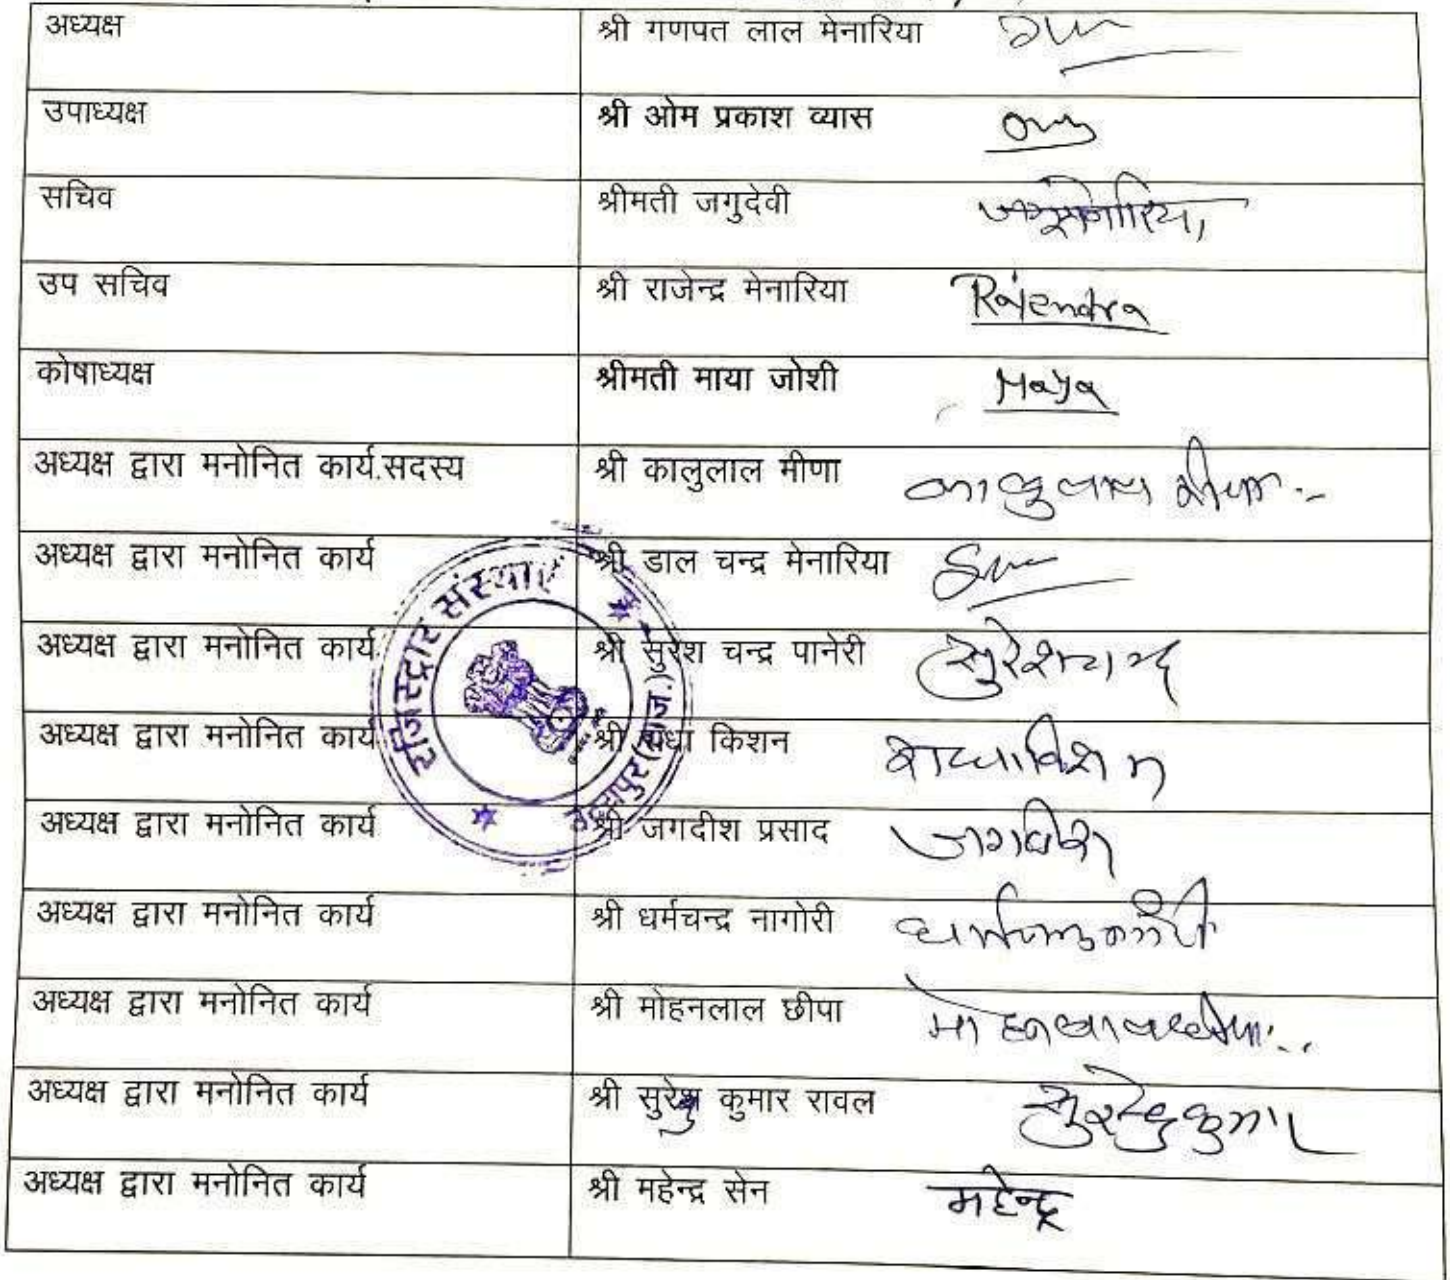 अध्यक्ष श्री गणपत लाल मेनारिया
उपाध्यक्ष श्री ओम प्रकाश व्यास
सचिव श्रीमती जगुदेवी
उप सचिव श्री राजेन्द्र मेनारिया Rajendra
कोषाध्यक्ष श्रीमती माया जोशी Maya
अध्यक्ष द्वारा मनोनित कार्य.सदस्य श्री कालुलाल मीणा
अध्यक्ष द्वारा मनोनित कार्य श्री डाल चन्द्र मेनारिया
अध्यक्ष द्वारा मनोनित कार्य श्री सुरेश चन्द्र पानेरी
अध्यक्ष द्वारा मनोनित कार्य श्री राधा किशन
अध्यक्ष द्वारा मनोनित कार्य श्री जगदीश प्रसाद जगदीश
अध्यक्ष द्वारा मनोनित कार्य श्री धर्मचन्द्र नागोरी
अध्यक्ष द्वारा मनोनित कार्य श्री मोहनलाल छीपा
अध्यक्ष द्वारा मनोनित कार्य श्री कुमार रावल
अध्यक्ष द्वारा मनोनित कार्य श्री महेन्द्र सेन महेन्द्र
रजिस्ट्रार संस्थाएं
उदयपुर (राज.)